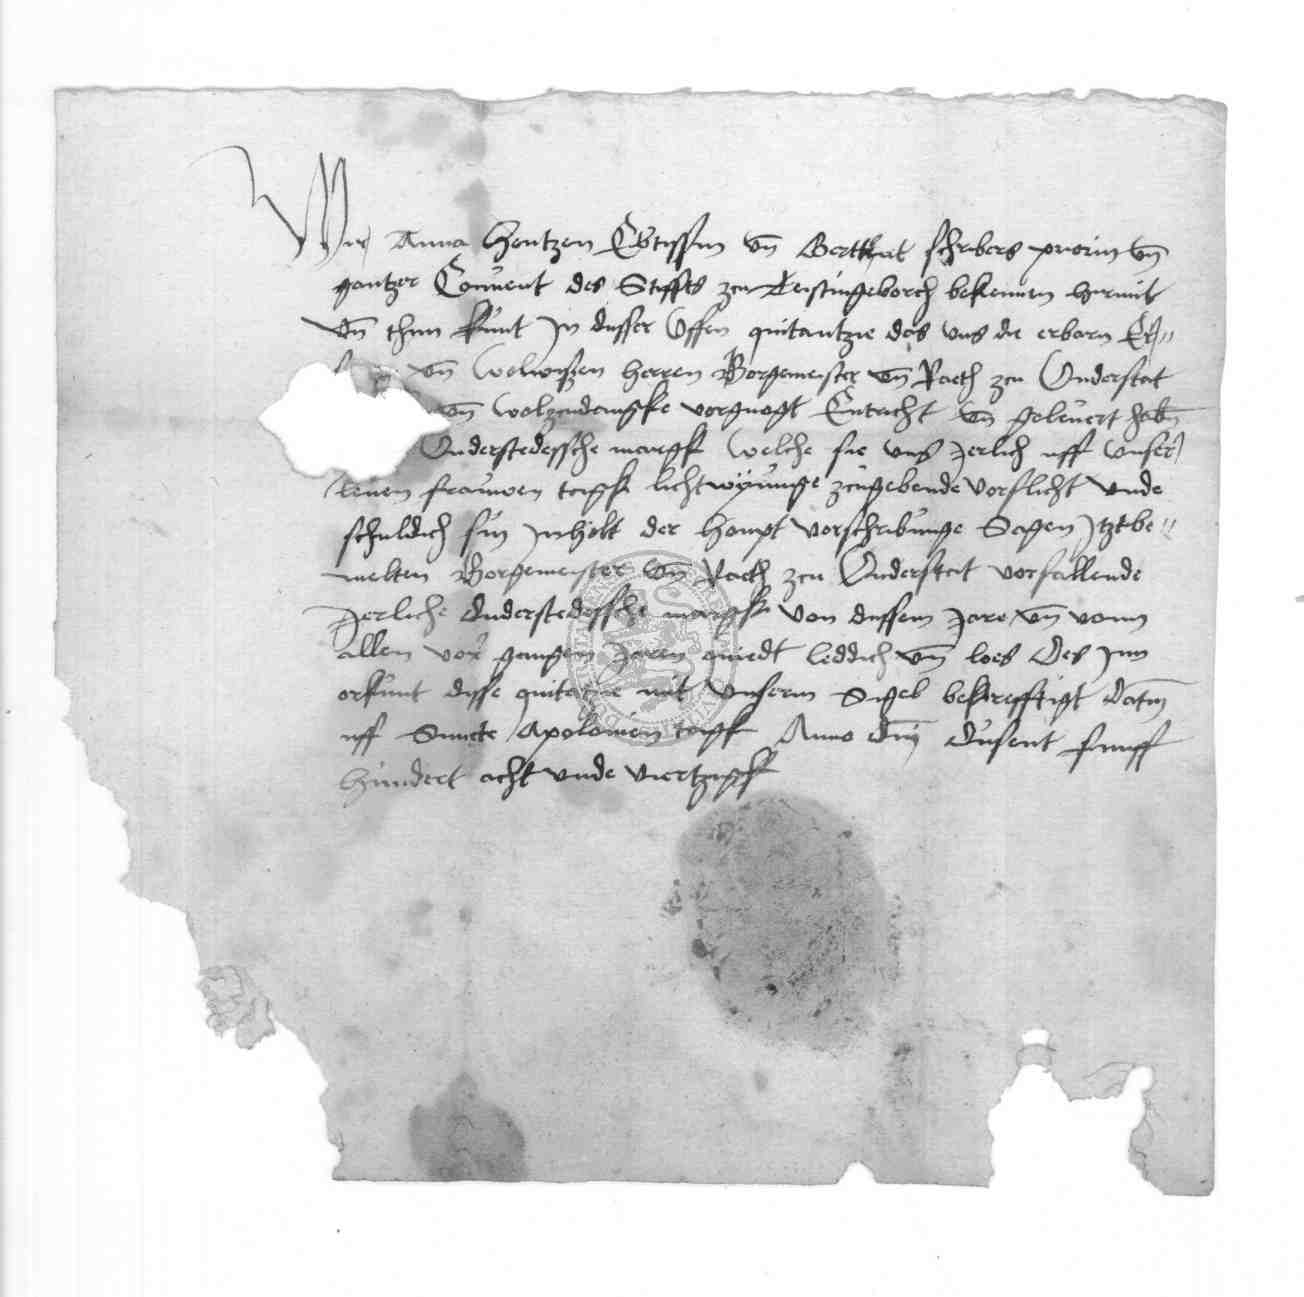 Wir Anna Hentzen Ebtissin vn̄ Berttrat schribers priorin vn̄
gantzer Conuent des Stiffts zcu Teistingeborch bekennen hirmit
vn̄ thun kunt Jn dusser Offen quitantzie das vns die erbarn Er„
vn̄ wolwißen herren Borgemeister vn̄ Raeth zcu Duderstat
vn̄ wolzudangke vorgnogt Entricht vn̄ geleuert habn̄
Duderstedessche margk Welche sie vns Jerlich uff vnser
leuen frauwen tagk lichtwÿunge zcugebende vorflicht vnde
schuldich sin Jnholt der houpt vorschribunge Sagen Jtztbe„
melten Borgemeister vn̄ Raeth zcu Duderstat vorfallende
Jerliche Duderstedessche margk von dussem Jare vn̄ vonn
allen vor gangen Jaren quiedt leddich vn̄ loes Des Jnn
orkunt disse quitancie mit vnserm Sigel bekrefftigt Datū
uff Sancte Apolonien tagk Anno dn̄i Dusent funff
hundert acht vnde viertzigk